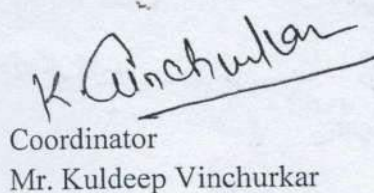 K. Vinchurkar
Coordinator
Mr. Kuldeep Vinchurkar